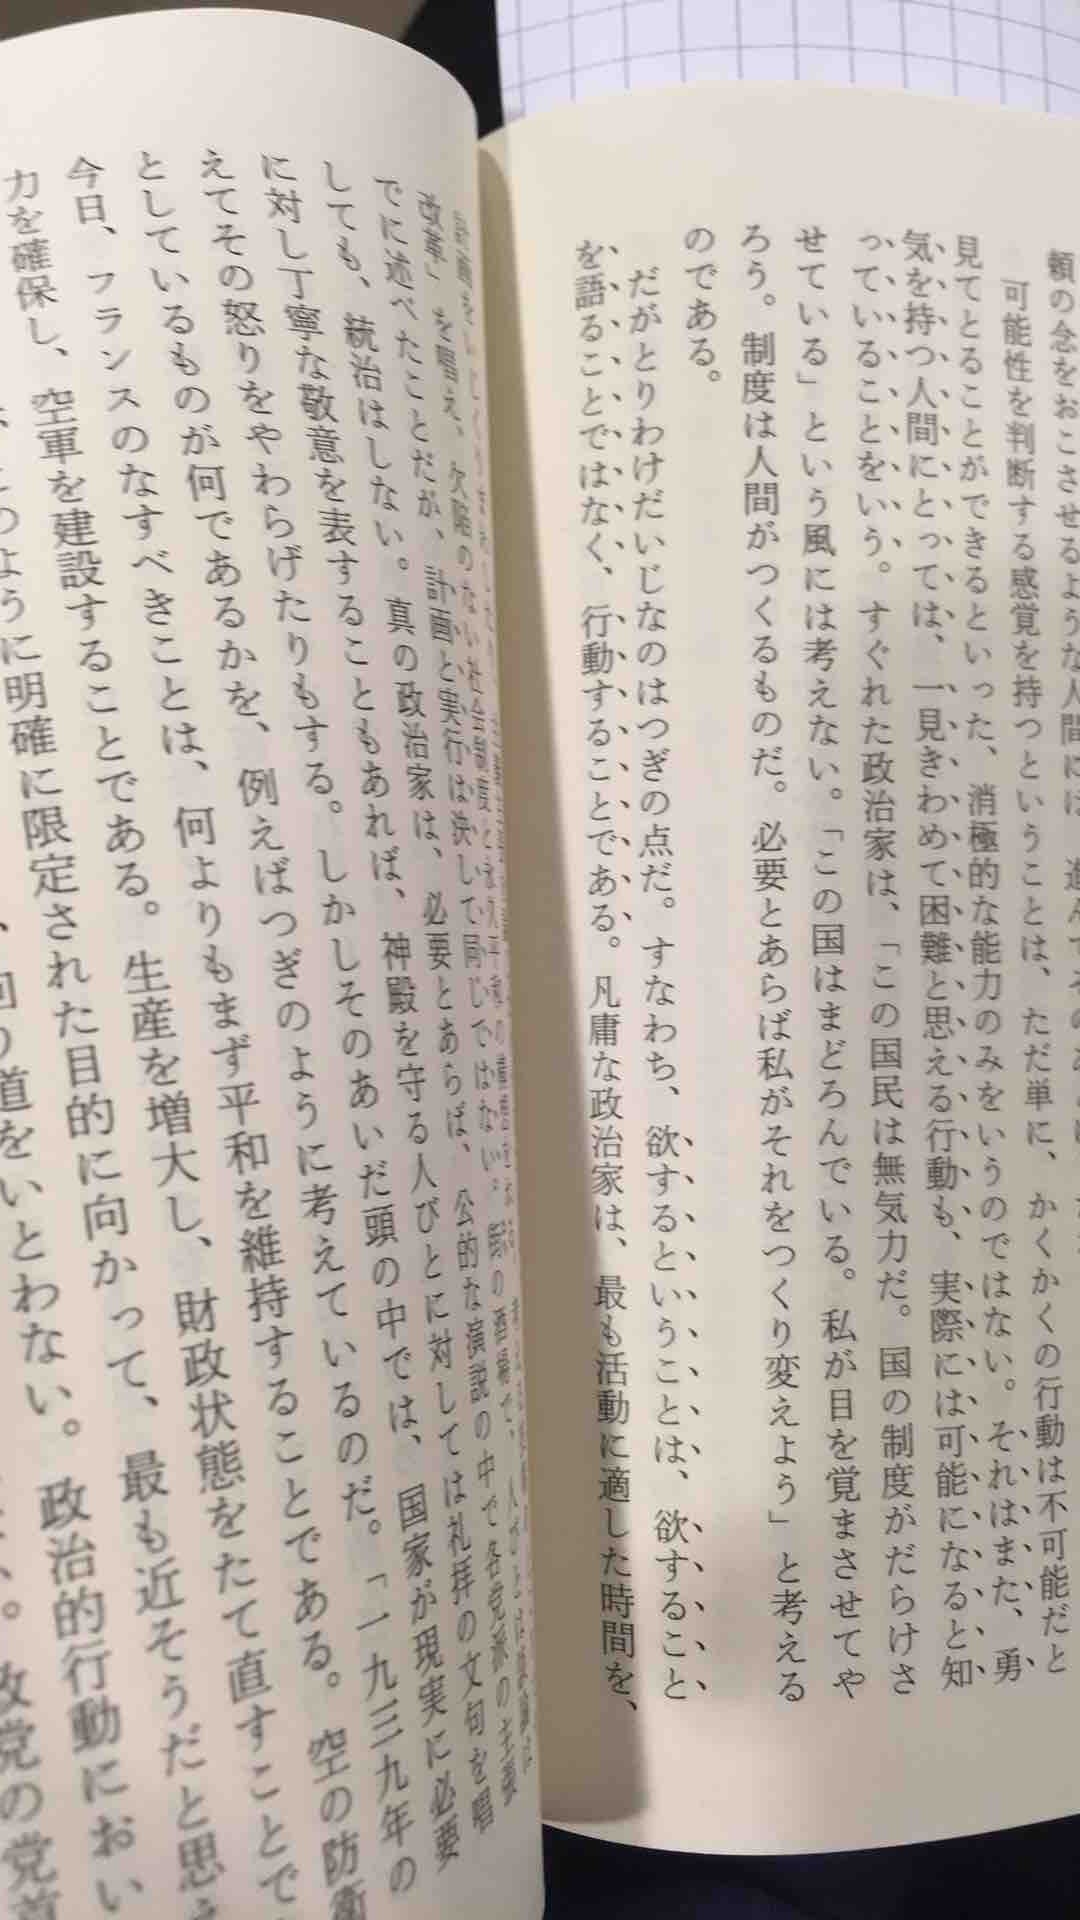 頼の念をおこさせるような人間には、進んでその
可能性を判断する感覚を持つということは、ただ単に、かくかくの行動は不可能だと
見てとることができるといった、消極的な能力のみをいうのではない。それはまた、勇
気を持つ人間にとっては、一見きわめて困難と思える行動も、実際には可能になると知
っていることをいう。すぐれた政治家は、「この国民は無気力だ。国の制度がだらけさ
せている」という風には考えない。「この国はまどろんでいる。私が目を覚まさせてや
ろう。制度は人間がつくるものだ。必要とあらば私がそれをつくり変えよう」と考える
のである。
だがとりわけだいじなのはつぎの点だ。すなわち、欲するということは、欲すること
を語ることではなく、行動することである。凡庸な政治家は、最も活動に適した時間を、
計画を
改革」を唱え、欠陥のない社会制度と永久平和の
でに述べたことだが、計画と実行は決して同じではない。街の酒場で、人びとは
しても、統治はしない。真の政治家は、必要とあらば、公的な演説の中で各党派の主張
に対し丁寧な敬意を表することもあれば、神殿を守る人びとに対しては礼拝の文句を唱
えてその怒りをやわらげたりもする。しかしそのあいだ頭の中では、国家が現実に必要
としているものが何であるかを、例えばつぎのように考えているのだ。「一九三九年の
今日、フランスのなすべきことは、何よりもまず平和を維持することである。空の防衛
力を確保し、空軍を建設することである。生産を増大し、財政状態をたて直すことで
このように明確に限定された目的に向かって、最も近そうだと思え
道をいとわない。政治的行動におい
政党の党首